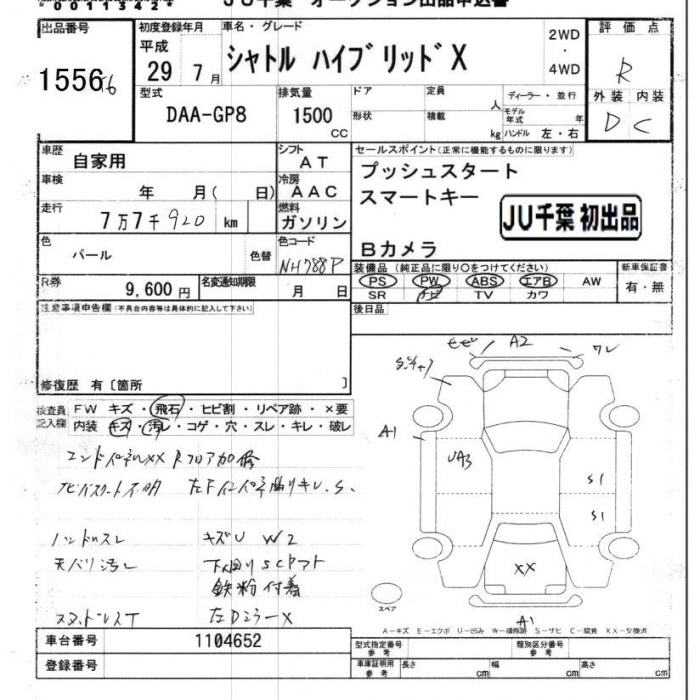 00113424
JU千葉 オークション出品申込書
出品番号
15566
初度登録年月
平成 29 7月
車名・グレード
シャトル ハイブリッドX
2WD
・
4WD
評価点
R
型式
DAA-GP8
排気量
1500 CC
ドア
形状
定員 人
積載 kg
ディーラー・並行
モデル年式 年
ハンドル 左・右
外装 内装
D C
車歴
自家用
シフト
AT
セールスポイント(正常に機能するものに限ります)
プッシュスタート
スマートキー
Bカメラ
JU千葉 初出品
車検
年 月( 日)
冷房
AAC
走行
7万7千920 km
燃料
ガソリン
色
パール
色替
色コード
NH788P
R券
9,600円
名変通知期限
月 日
装備品(純正品に限り○をつけてください)
PS PW ABS エアB AW
SR ナビ TV カワ
新車保証書
有・無
注意事項申告欄(不具合内容等は具体的に記入して下さい)
後日品
修復歴 有〔箇所 〕
検査員記入欄
FW キズ・飛石・ヒビ割・リペア跡・×要
内装 キズ・汚レ・コゲ・穴・スレ・キレ・破レ
エンドパネルXX Rフロア加修
ナビバスタート不明
ハンドルスレ
キズU W2
天バリ汚レ
下回りSCヤフト
鉄粉付着
左DミラーX
A2
ワレ
A1
UA3
S1
S1
XX
A1
スペア
A-キズ E-エクボ U-凹み W-補修跡 S-サビ C-腐食 XX-交換点
車台番号
1104652
登録番号
型式指定番号
参考
類別区分番号
参考
車庫証明用
参考
長さ cm
幅 cm
高さ cm